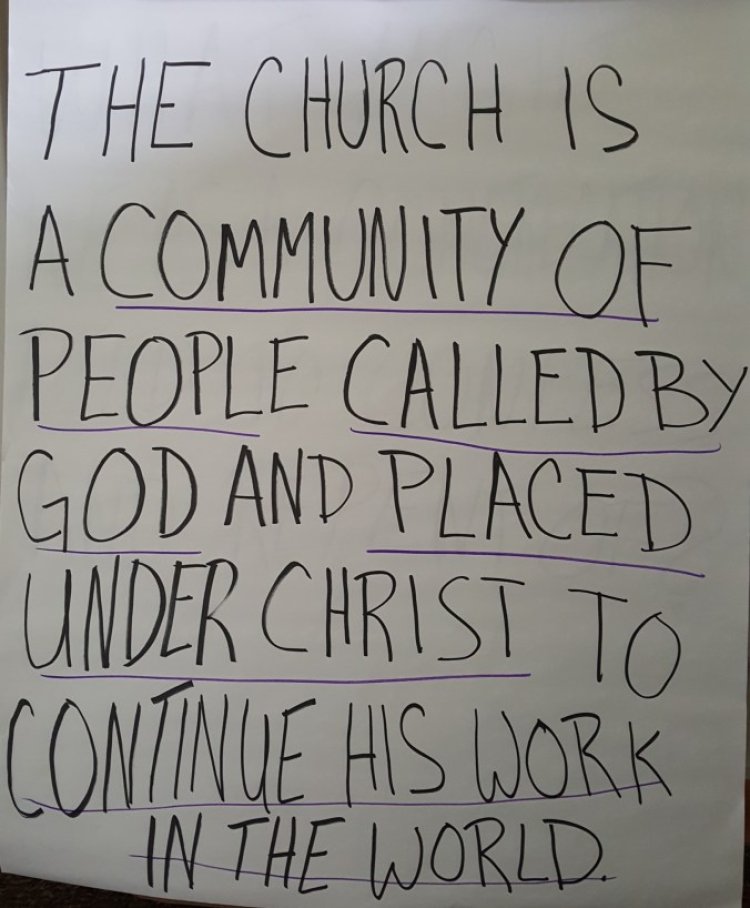 THE CHURCH IS
A COMMUNITY OF
PEOPLE CALLED BY
GOD AND PLACED
UNDER CHRIST TO
CONTINUE HIS WORK
IN THE WORLD.